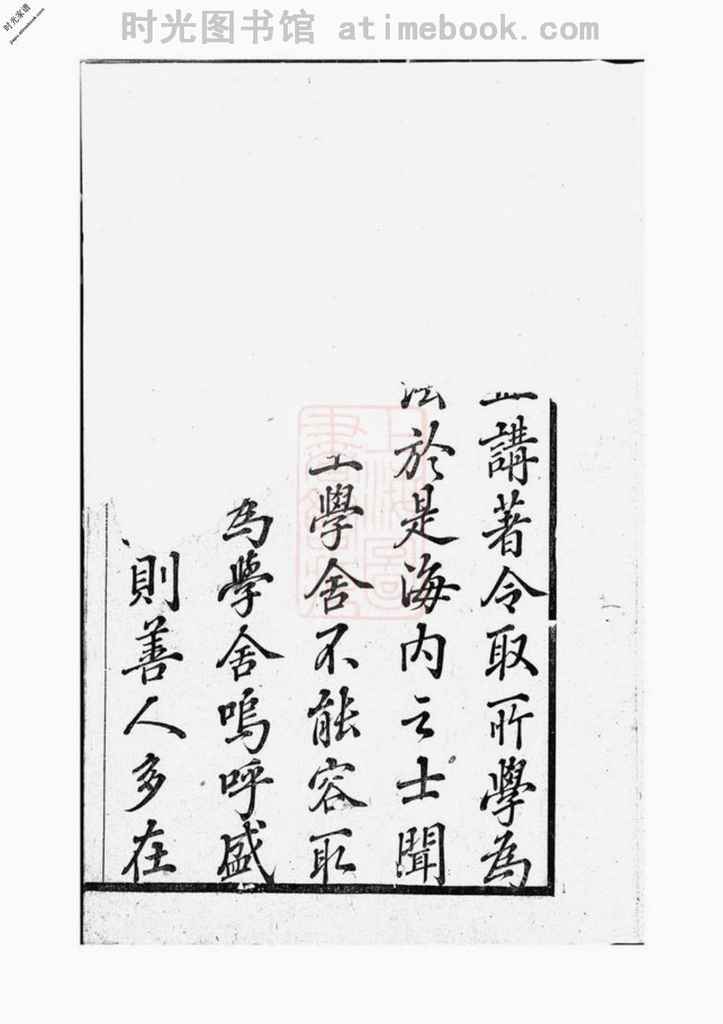 时光图书馆 atimebook.com
时光家谱
講著令取所學為
於是海内之士聞
學舍不能容取
為學舍嗚呼盛
則善人多在